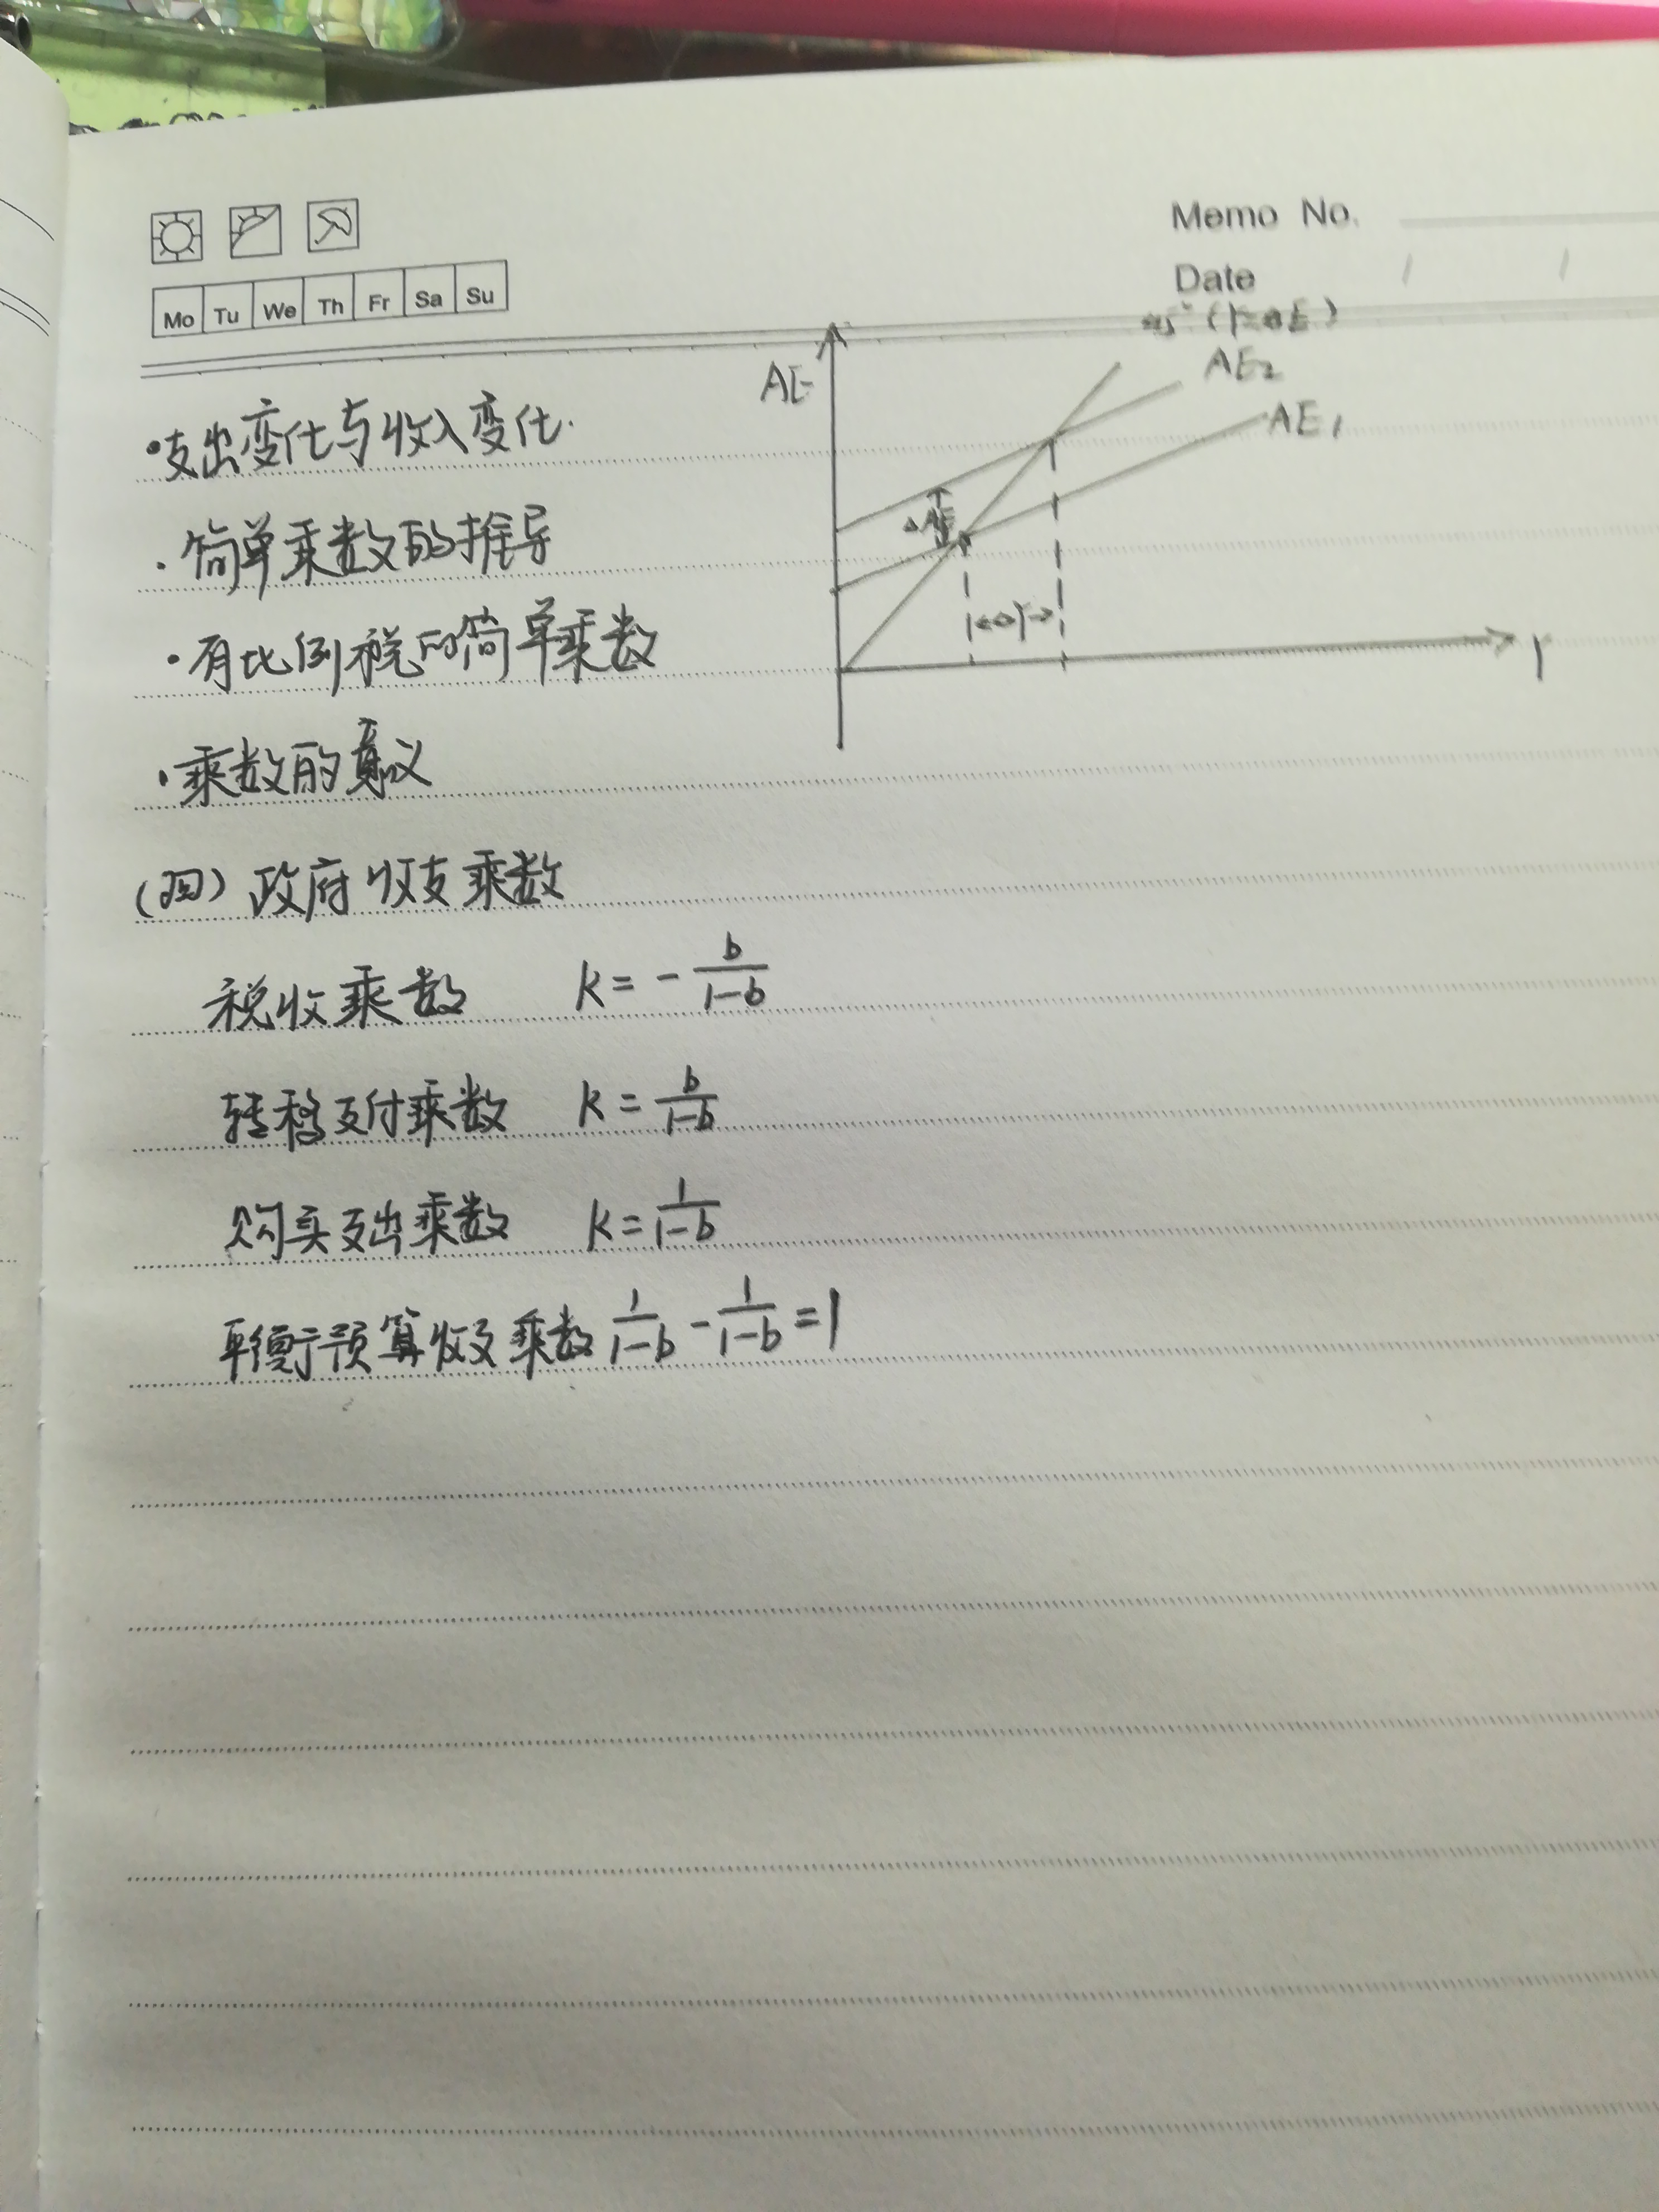 Memo No.
Date / /
Mo Tu We Th Fr Sa Su
45° (Y=AE)
AE
AE2
AE1
ΔAE
ΔY
Y
·支出变化与收入变化.
·简单乘数的推导
·有比例税的简单乘数
·乘数的意义
(四)政府收支乘数
税收乘数 K = - b/(1-b)
转移支付乘数 K = b/(1-b)
购买支出乘数 K = 1/(1-b)
平衡预算收支乘数 1/(1-b) - 1/(1-b) = 1